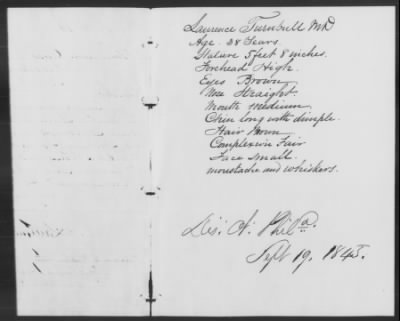 Lawrence Turnbull MD
Age 28 Years.
Stature 5 feet 8 inches.
Forehead High.
Eyes Brown
Nose Straight.
Mouth medium
Chin long with dimple.
Hair Brown
Complexion Fair
Face Small.
moustache and whiskers.
Phila.
Sept 19, 1845.